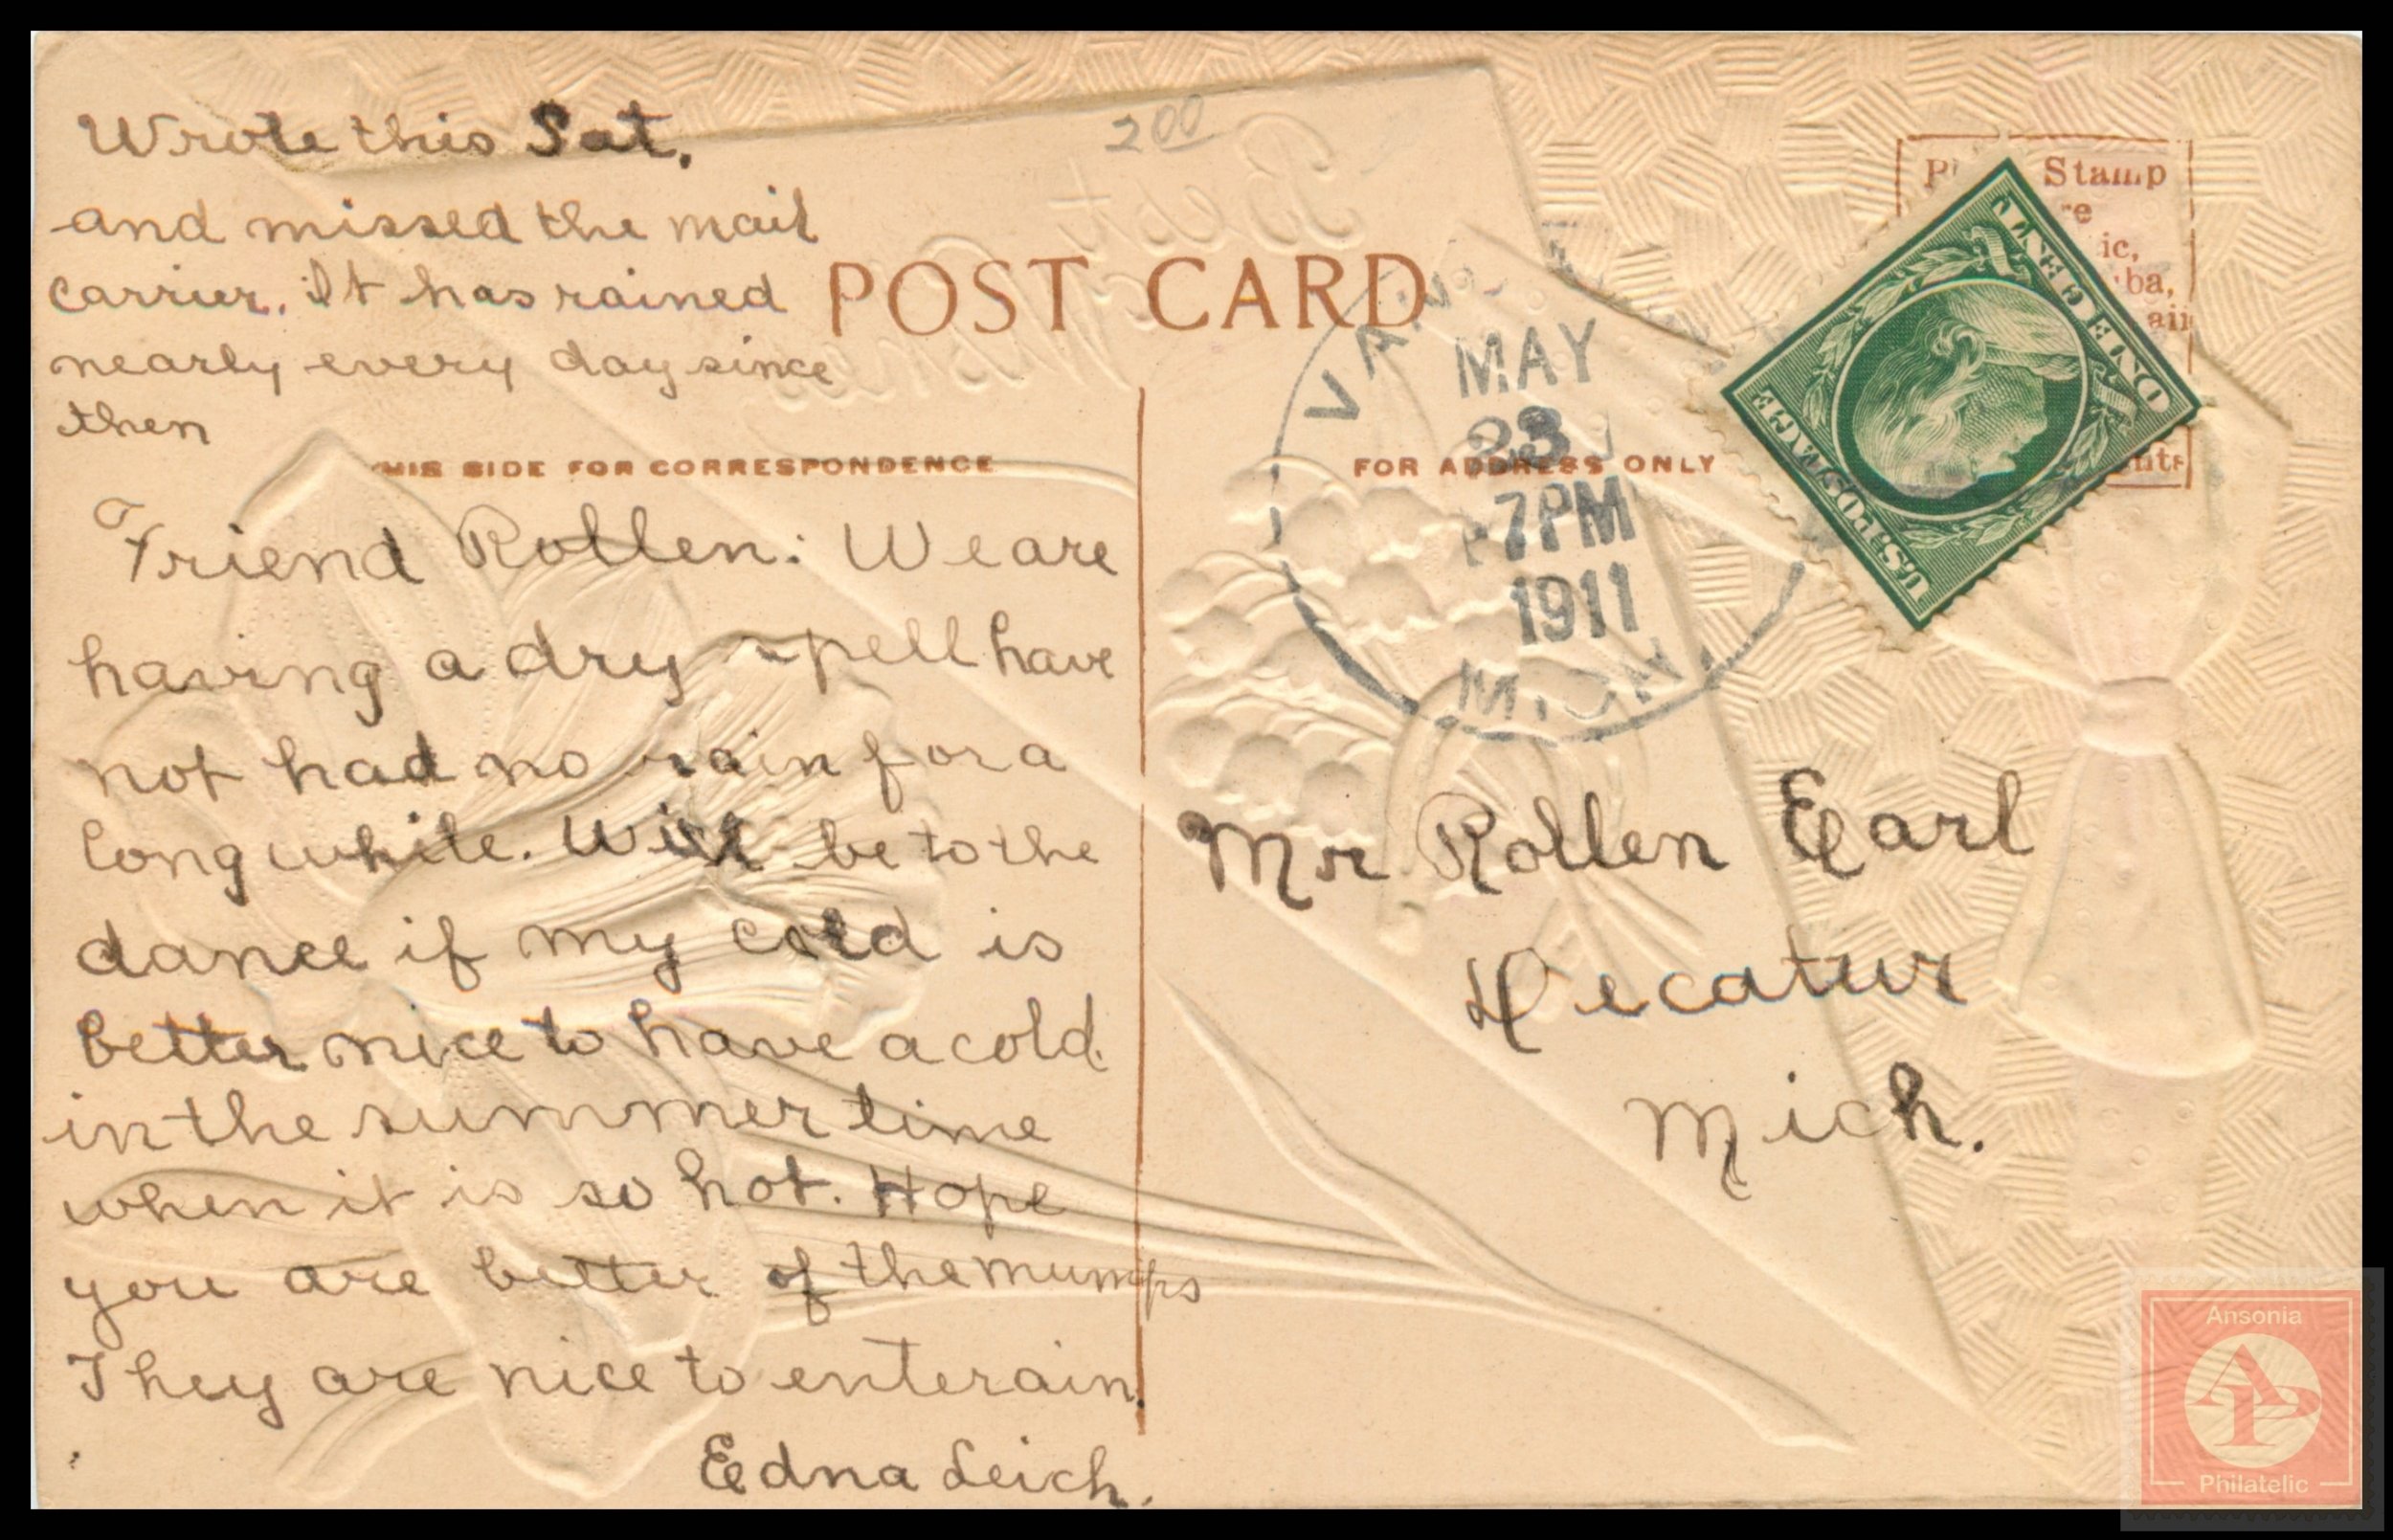 Wrote this Sat.
and missed the mail
carrier. It has rained
nearly every day since
then
200
Best
Wishes
POST CARD
THIS SIDE FOR CORRESPONDENCE
FOR ADDRESS ONLY
Stamp
VAN
MAY
23
7PM
1911
MICH.
ONE CENT
U.S. POSTAGE
Friend Rollen: We are
having a dry spell have
not had no rain for a
long while. Will be to the
dance if my cold is
better nice to have a cold
in the summer time
when it is so hot. Hope
you are better of the mumps
They are nice to enterain.
Edna Leich.
Mr Rollen Earl
Decatur
Mich.
Ansonia
AP
Philatelic